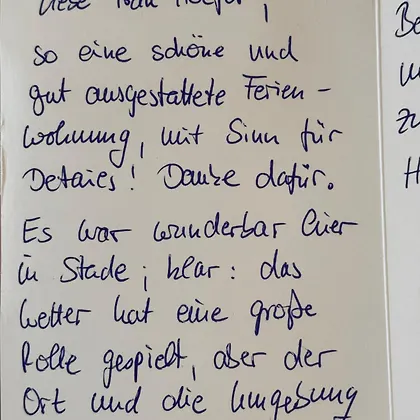 so eine schöne und
gut ausgestattete Ferien-
wohnung, mit Sinn für
Details! Danke dafür.
Es war wunderbar hier
in Stade; klar: das
Wetter hat eine große
Rolle gespielt, aber der
Ort und die Umgebung